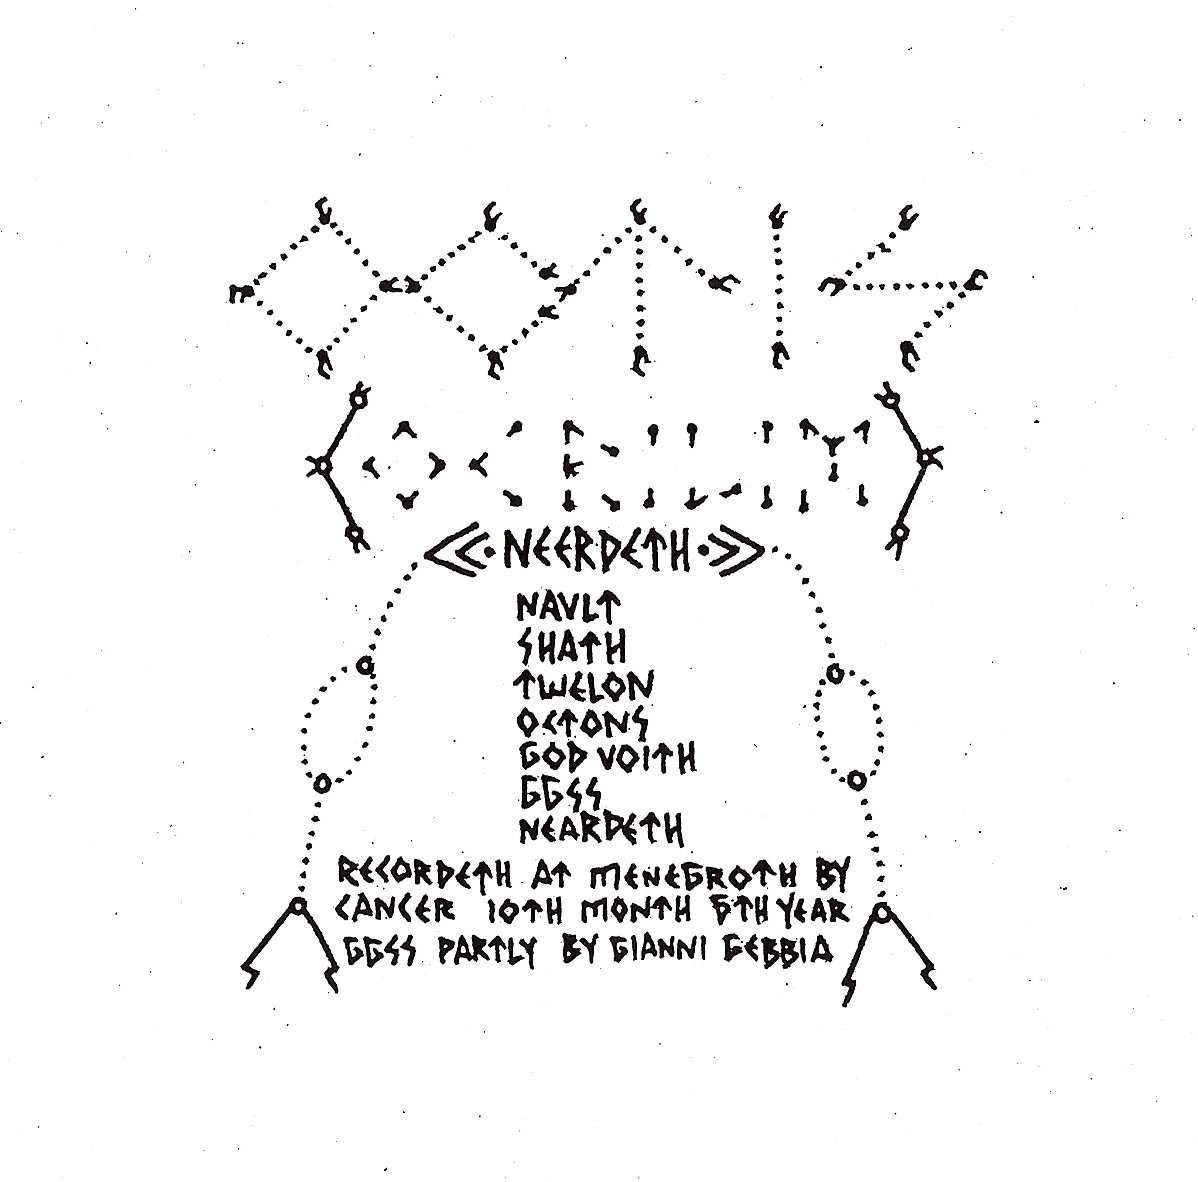 NEERDETH
NAVLT
SHATH
TWELON
OCTONS
GOD VOITH
GGSS
NEARDETH
RECORDETH AT MENEGROTH BY
CANCER 10TH MONTH YEAR
GGSS PARTLY BY GIANNI GEBBIA